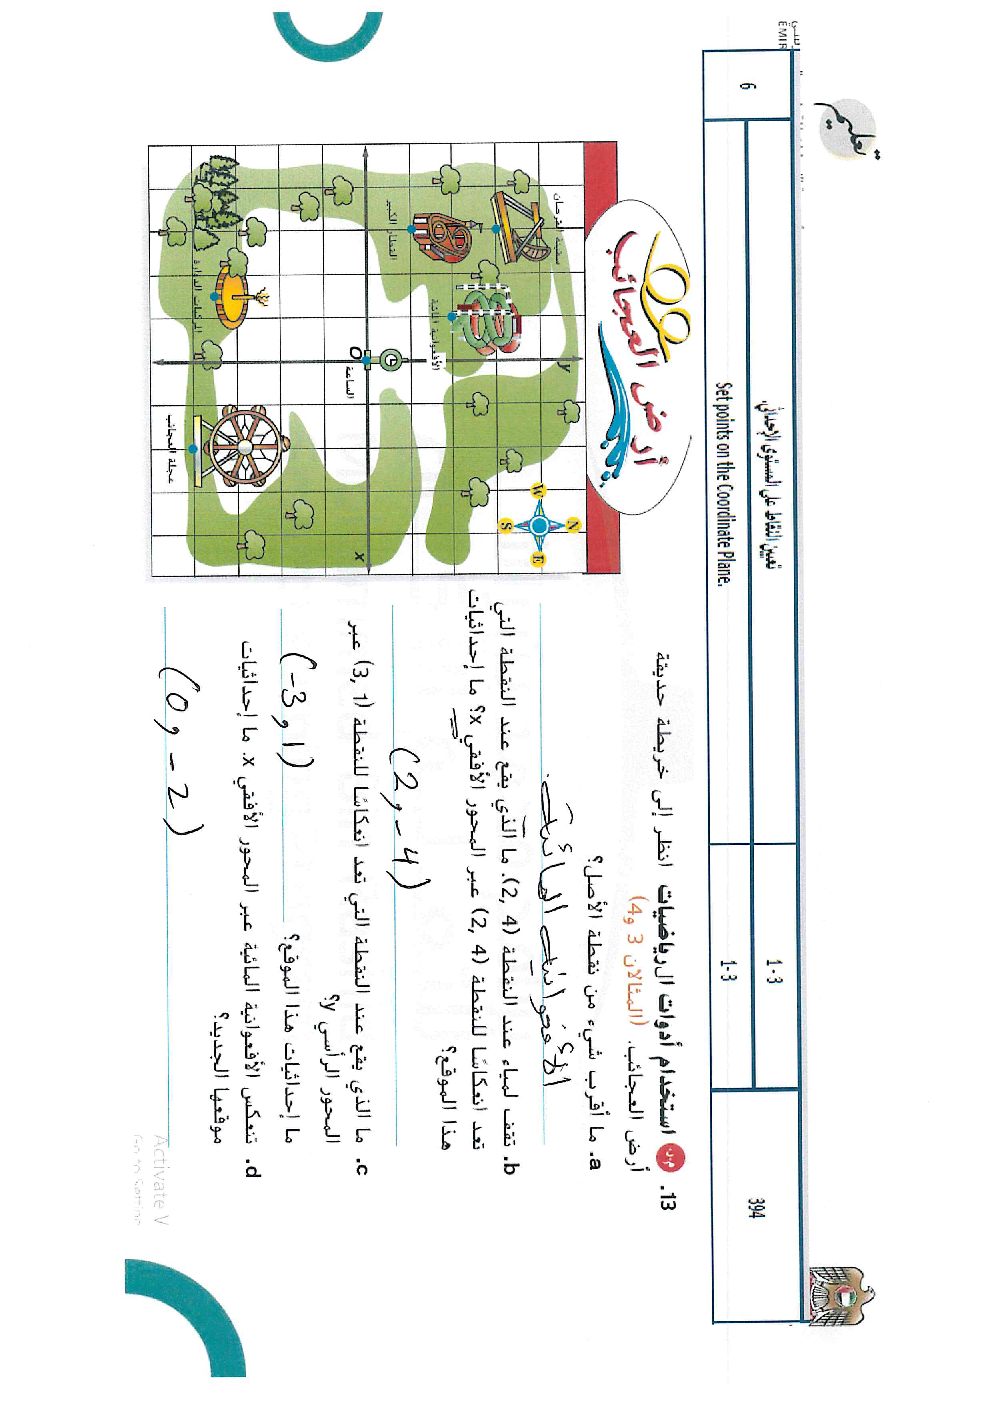 تعليم
EMIR
6
تعيين النقاط على المستوى الإحداثي.
Set points on the Coordinate Plane.
1-3
1-3
394
13. م.ر استخدام أدوات الرياضيات انظر إلى خريطة حديقة
أرض العجائب. (المثالان 3 و4)
a. ما أقرب شيء من نقطة الأصل؟
b. تقف لمياء عند النقطة (2, 4). ما الذي يقع عند النقطة التي
تعد انعكاسًا للنقطة (2, 4) عبر المحور الأفقي x؟ ما إحداثيات
هذا الموقع؟
(2, -4)
c. ما الذي يقع عند النقطة التي تعد انعكاسًا للنقطة (3, 1) عبر
المحور الرأسي y؟
ما إحداثيات هذا الموقع؟
(-3, 1)
d. تنعكس الأفعوانية المائية عبر المحور الأفقي x. ما إحداثيات
موقعها الجديد؟
(0, -2)
أرض العجائب
N
W
E
S
y
x
O
القطار الكبير
الساعة
عجلة العجائب
Activate V